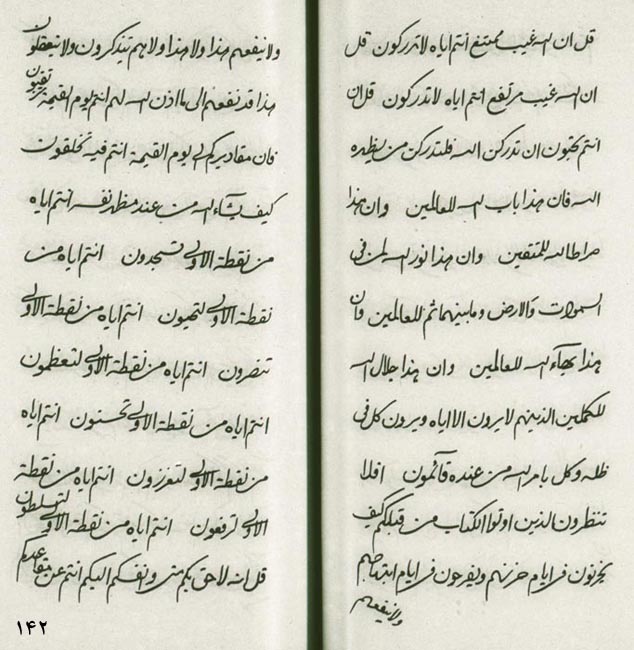 قل ان الله غیب ممتنع انتم ایاه لا تدرکون قل
ان الله غیب مرتفع انتم ایاه لا تدرکون قل ان
انتم تحبون ان تدرکن الله فلتدرکن من یظهره
الله فان هذا باب الله للعالمین وان هذا
صراط الله للمتقین وان هذا نور الله لمن فی
السموات والارض وما بینهما ثم للعالمین وان
هذا بهاء الله للعالمین وان هذا جلال الله
للکملین الذینهم لا یرون الا ایاه ویرون کل فی
ظله وکل بامر الله من عنده قائمون افلا
تنظرون الذین اوتوا الکتاب من قبلکم کیف
یحزنون فی ایام حزنهم ویفرحون فی ایام ابتهاجهم
ولا ینفعهم
ولا ینفعهم هذا ولا هذا ولا هم یتذکرون ولا یتعقلون
هذا قد نفعهم الی ما اذن الله لهم انتم یوم القیمة
فان مقادیرکم الی یوم القیمة انتم فیه تخلقون
کیف یشاء الله من عند مظهر نفسه انتم ایاه
من نقطة الاولی تسجدون انتم ایاه من
نقطة الاولی لتحبون انتم ایاه من نقطة الاولی
تنصرون انتم ایاه من نقطة الاولی لتعظمون
انتم ایاه من نقطة الاولی تحسنون انتم ایاه
من نقطة الاولی لتعززون انتم ایاه من نقطة
الاولی لترفعون انتم ایاه من نقطة الاولی لتسلطون
قل الله لاحق بکم منی ونفسکم الیکم انتم عن مقاعدکم
۱۴۲